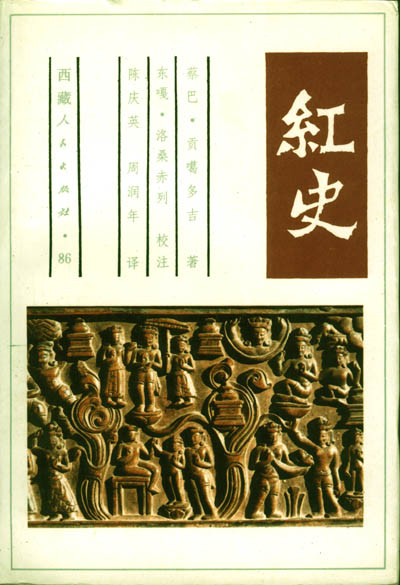 紅史
蔡巴·贡噶多吉 著
东嘎·洛桑赤列 校注
陈庆英 周润年 译
西藏人民出版社·86